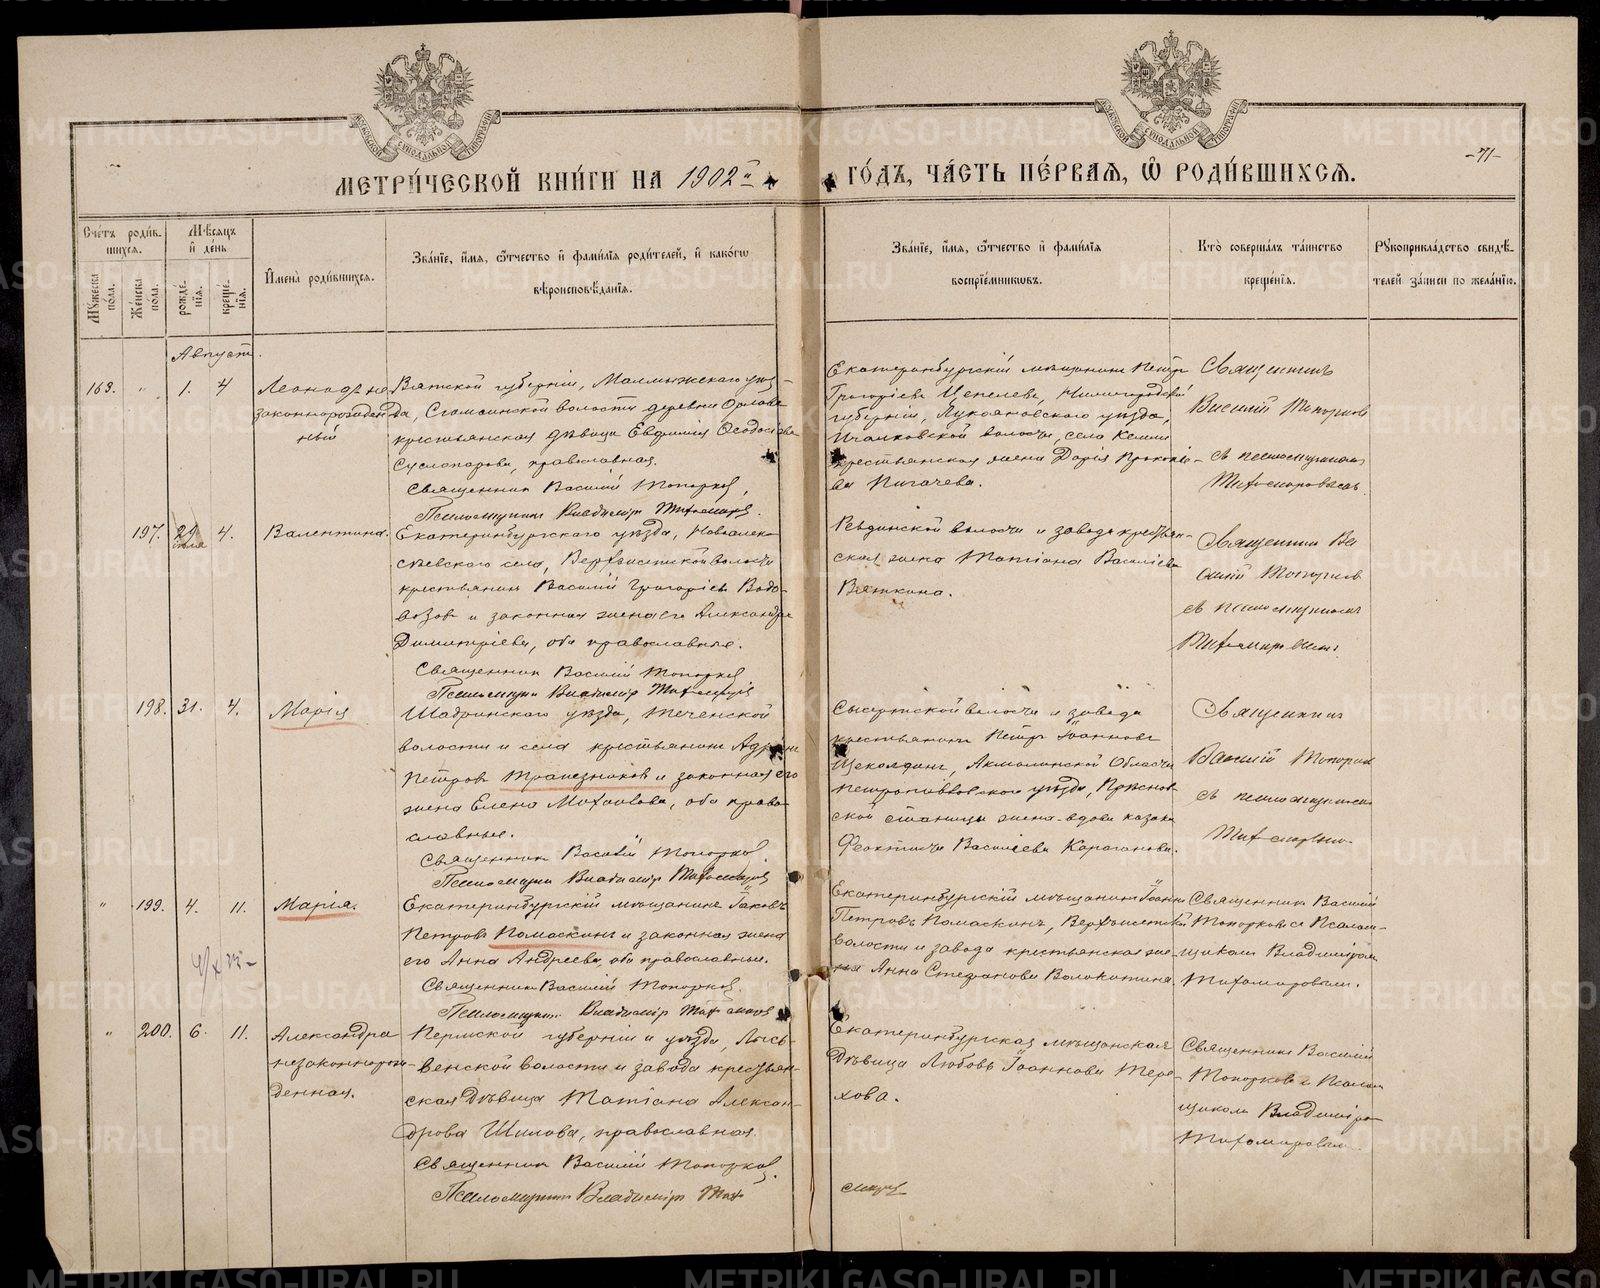 МЕТРИ́ЧЕСКОЙ КНИ́ГИ НА 1902й ГО́ДЪ, ЧА́СТЬ ПЕ́РВАЯ, Ѿ РОДИ́ВШИХСЯ.
-71-
Сче́тъ роди́вшихся.
Мѹжеска по́ла.
Же́нска по́ла.
Мѣ́сяцъ и де́нь
рожде́нїя.
креще́нїя.
И҆мена̀ роди́вшихся.
Зва́нїе, и҆́мя, ѻ҆́тчество и҆ фами́лїя роди́телей, и҆ како́гѡ
вѣроисповѣ́данїя.
Зва́нїе, и҆́мя, ѻ҆́тчество и҆ фами́лїя
воспрїе́мниковъ.
Кто̀ соверша́лъ та́инство
креще́нїя.
Рѹкоприкла́дство свидѣ́-
телей за́писи по жела́нїю.
Августъ.
163. " 1. 4
Леонидъ не
законнорожден
ный
Вятской губерніи, Малмыжскаго уѣз-
да, волости деревни Орлова
крестьянская дѣвица Евфимія Ѳеодосіева
Суслопарова, православная.
Священникъ Василій Топорковъ,
Псаломщикъ Владиміръ Тихомировъ.
Екатеринбургскій мѣщанинъ Петръ
Григоріевъ Шепелевъ, Нижегородской
губерніи, Лукояновскаго уѣзда,
Ичалковской волости, села Кемли
крестьянская жена Дарія Прокопіе-
ва Пигачева.
Священникъ
Василій Топорковъ
съ псаломщикомъ
Тихомировымъ.
197. 29 іюля 4.
Валентина.
Екатеринбургскаго уѣзда, Новоалек-
сѣевскаго села, Верхъисетской волости
крестьянинъ Василій Григоріевъ Водо-
возовъ и законная жена его Александра
Димитріева, оба православные.
Священникъ Василій Топорковъ
Псаломщикъ Владиміръ Тихомировъ
Ревдинской волости и завода крестьян-
ская жена Татіана Василіева
Вяткина.
Священникъ Ва
силій Топорковъ
съ псаломщикомъ
Тихомировымъ.
198. 31. 4.
Марія
Шадринскаго уѣзда, Теченской
волости и села крестьянинъ Адріанъ
Петровъ Трапезниковъ и законная его
жена Елена Михайлова, оба право-
славные.
Священникъ Василій Топорковъ
Псаломщикъ Владиміръ Тихомировъ
Сысертской волости и завода
крестьянинъ Петръ Іоанновъ
Щеколдинъ, Акмолинской Области
Петропавловскаго уѣзда, Прѣснов
ской станицы жена-вдова казака
Феоктиста Василіева Караганова.
Священникъ
Василій Топорковъ
съ псаломщикомъ
Тихомировымъ
" 199. 4. 11.
Марія.
Екатеринбургскій мѣщанинъ Іаковъ
Петровъ Помаскинъ и законная жена
его Анна Андреева, оба православные.
Священникъ Василій Топорковъ
Псаломщикъ Владиміръ Тихомировъ
Екатеринбургскій мѣщанинъ Іоаннъ
Петровъ Помаскинъ, Верхъисетской
волости и завода крестьянская же-
на Анна Стефанова Волокитина
Священникъ Василій
Топорковъ съ Псалом-
щикомъ Владиміромъ
Тихомировымъ.
" 200. 6. 11.
Александра
незаконнорож-
денная.
Пермской губерніи и уѣзда, Лысь-
венской волости и завода крестьян-
ская дѣвица Татіана Алексан-
дрова Шилова, православная.
Священникъ Василій Топорковъ.
Псаломщикъ Владиміръ Тихо
мировъ
Екатеринбургская мѣщанская
Дѣвица Любовь Іоаннова Тере-
хова.
Священникъ Василій
Топорковъ съ Псалом
щикомъ Владиміромъ
Тихомировымъ.
METRIKI.GASO-URAL.RU